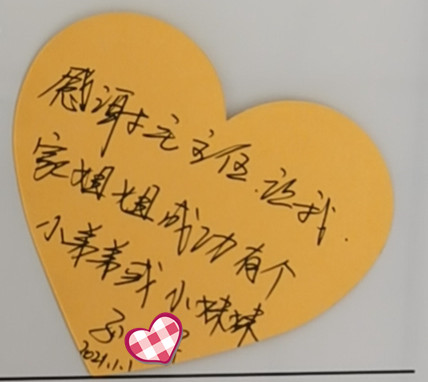 感谢尤主任.让我
家姐姐成功有个
小弟弟或小妹妹
2021.1.1